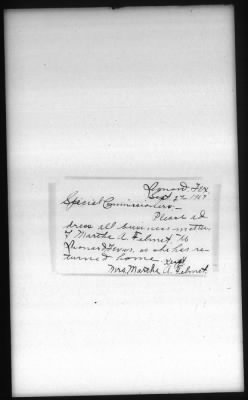 Leonard, Tex
Sept 27 1907
Special Commissioners—
Please ad
dress all business matters
of Martha A. Felmet to
Leonard Texas as she has re
turned home.
Mrs. Martha A. Felmet.